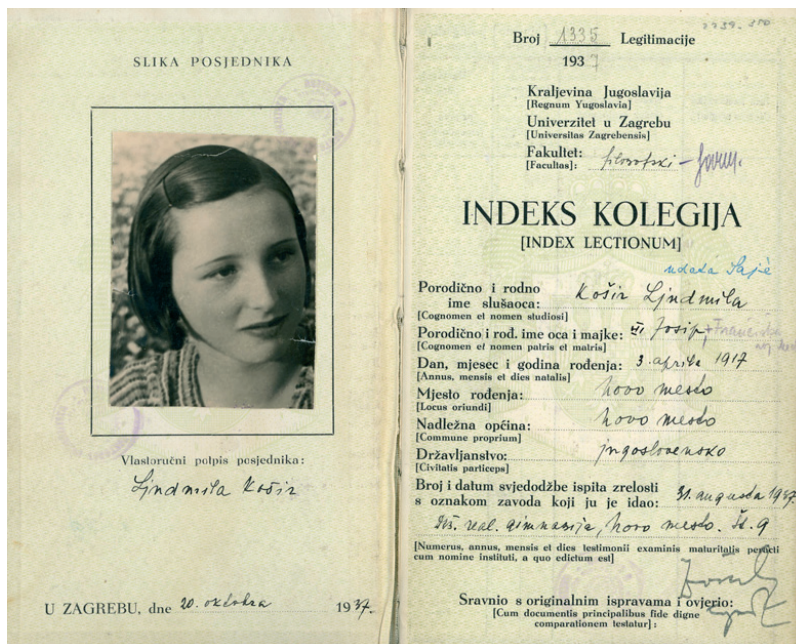 SLIKA POSJEDNIKA
Vlastoručni potpis posjednika:
Ljudmila Košir
U ZAGREBU, dne 20. oktobra 1937.
Broj 1335 Legitimacije
1937
Kraljevina Jugoslavija
[Regnum Yugoslavia]
Univerzitet u Zagrebu
[Universitas Zagrebensis]
Fakultet: filozofski –
[Facultas]:
INDEKS KOLEGIJA
[INDEX LECTIONUM]
udata Sajè
Porodično i rodno
ime slušaoca: Košir Ljudmila
[Cognomen et nomen studiosi]
Porodično i rod. ime oca i majke: Josip,
[Cognomen et nomen patris et matris]
Dan, mjesec i godina rođenja: 3. aprila 1917
[Annus, mensis et dies natalis]
Mjesto rođenja: Novo mesto
[Locus oriundi]
Nadležna općina: Novo mesto
[Commune proprium]
Državljanstvo: jugoslovensko
[Civitatis particeps]
Broj i datum svjedodžbe ispita zrelosti
s oznakom zavoda koji ju je idao: 31. augusta 1937
real. gimnazija, Novo mesto. Št. 9
[Numerus, annus, mensis et dies testimonii examinis maturitatis peracti
cum nomine instituti, a quo edictum est]
Sravnio s originalnim ispravama i ovjerio:
[Cum documentis principalibus fide digne
comparationem testatur]: